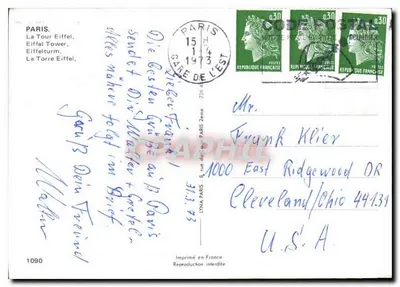 PARIS.
La Tour Eiffel,
Eiffel Tower,
Eiffelturm,
La Torre Eiffel,
PARIS
15 H
1-4
1973
GARE DE L'EST
CODE POSTAL
0,30
0,30
0,30
REPUBLIQUE FRANÇAISE
REPUBLIQUE FRANÇAISE
REPUBLIQUE FRANÇAISE
31.3.73
Lieber Freund!
Die besten Grüße aus Paris
sendet Dir Walter + Gretel.
Alles nähere folgt im Brief.
Gruß Dein Freund
Walter
Mr.
Frank Klier
1000 East Ridgewood DR
Cleveland/Ohio 44131
U.S.A.
1090
Imprimé en France
Reproduction interdite